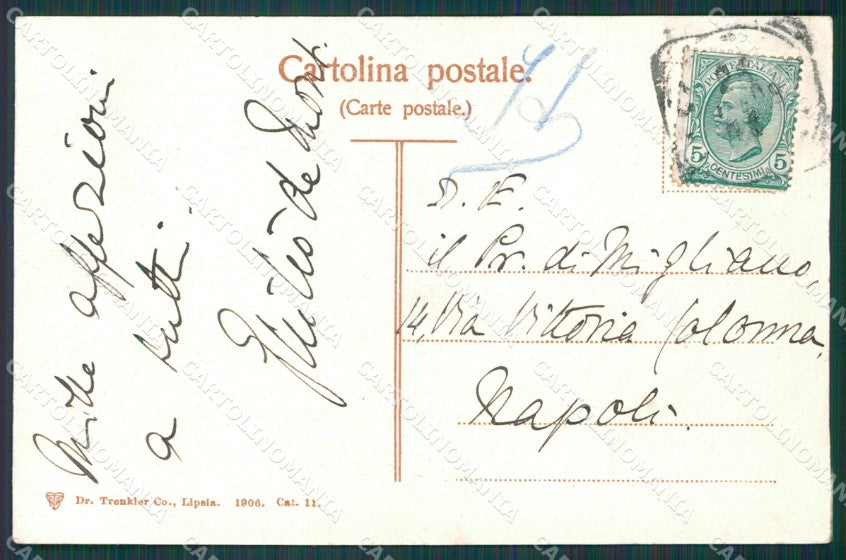 Cartolina postale.
(Carte postale.)
POSTE ITALIANE
5 5
CENTESIMI
Mille affezioni
a tutti.
de
S. E.
il Pr. di Migliano,
14, Via Vittoria Colonna,
Napoli.
Dr. Trenkler Co., Lipsia. 1906. Cat. 11.
CARTOLINOMANIA